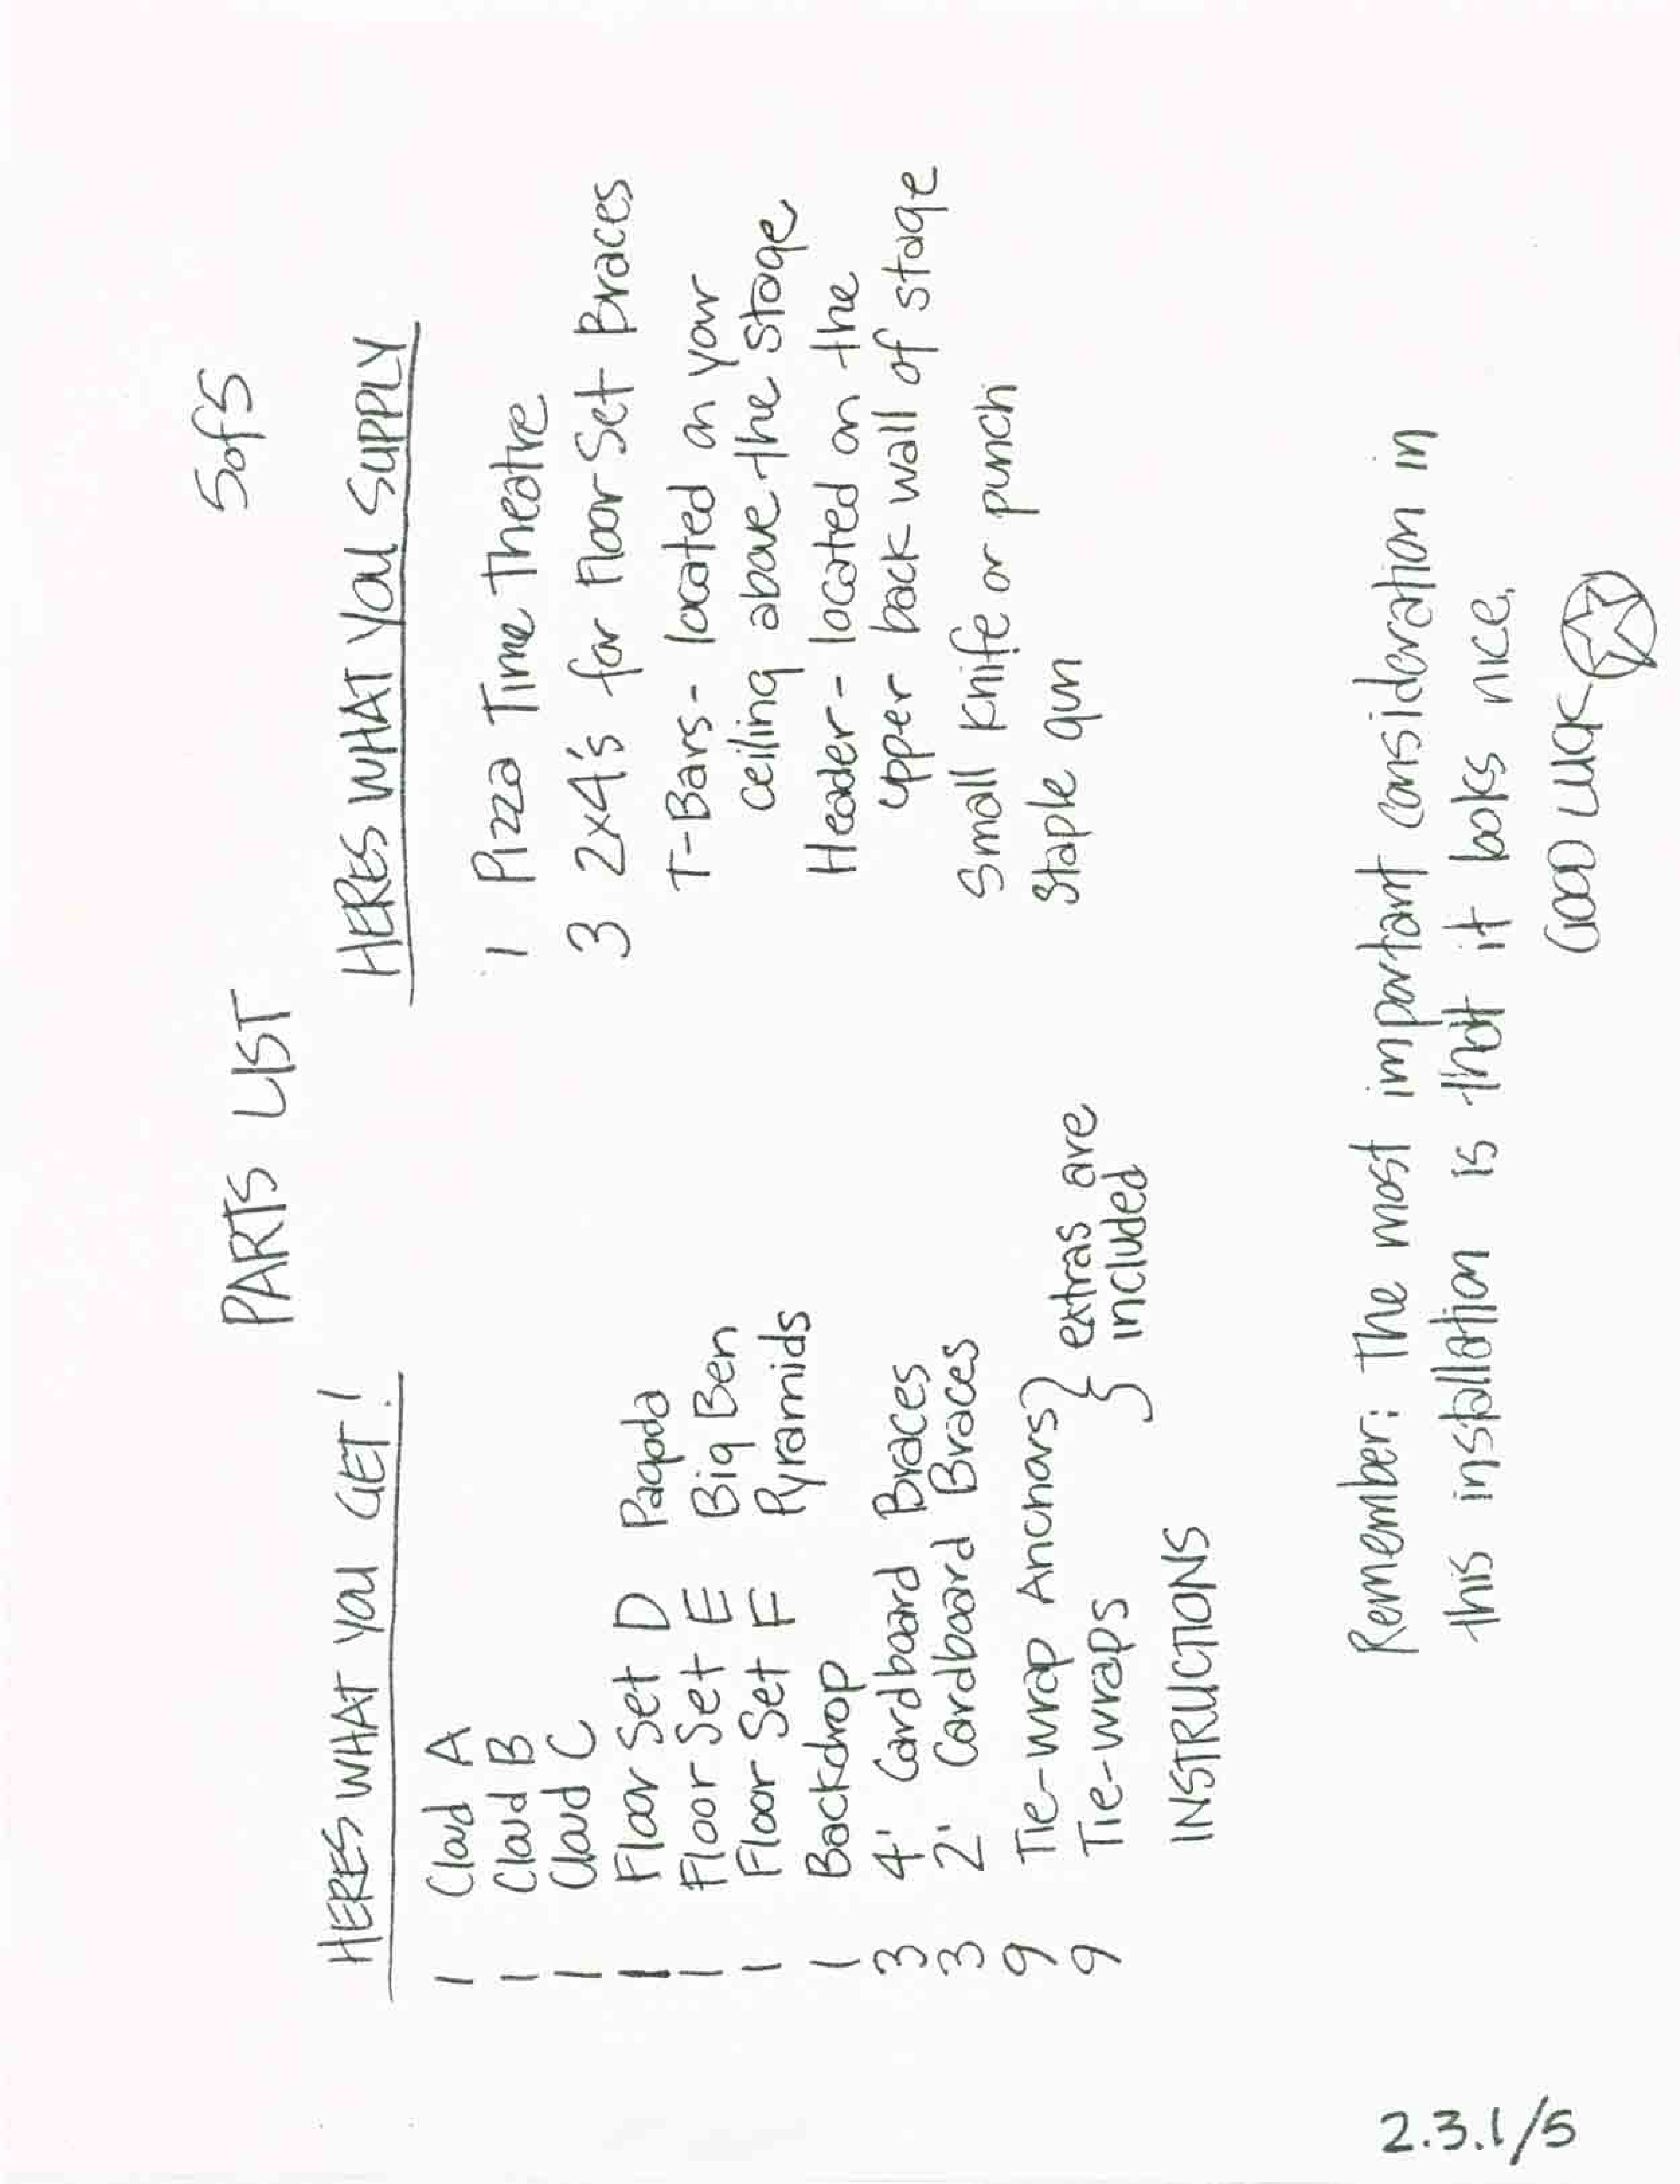 5 of 5
PARTS LIST
HERES WHAT YOU GET!
1 Cloud A
1 Cloud B
1 Cloud C
1 Floor Set D Pagoda
1 Floor Set E Big Ben
1 Floor Set F Pyramids
1 Backdrop
3 4' Cardboard Braces
3 2' Cardboard Braces
9 Tie-wrap Anchors } extras are
9 Tie-wraps } included
INSTRUCTIONS
HERES WHAT YOU SUPPLY
1 Pizza Time Theatre
3 2x4's for Floor Set Braces
T-Bars- located on your
ceiling above the stage
Header- located on the
upper back wall of stage
Small knife or punch
Staple gun
Remember: The most important consideration in
this installation is that it looks nice.
GOOD LUCK
2.3.1/5